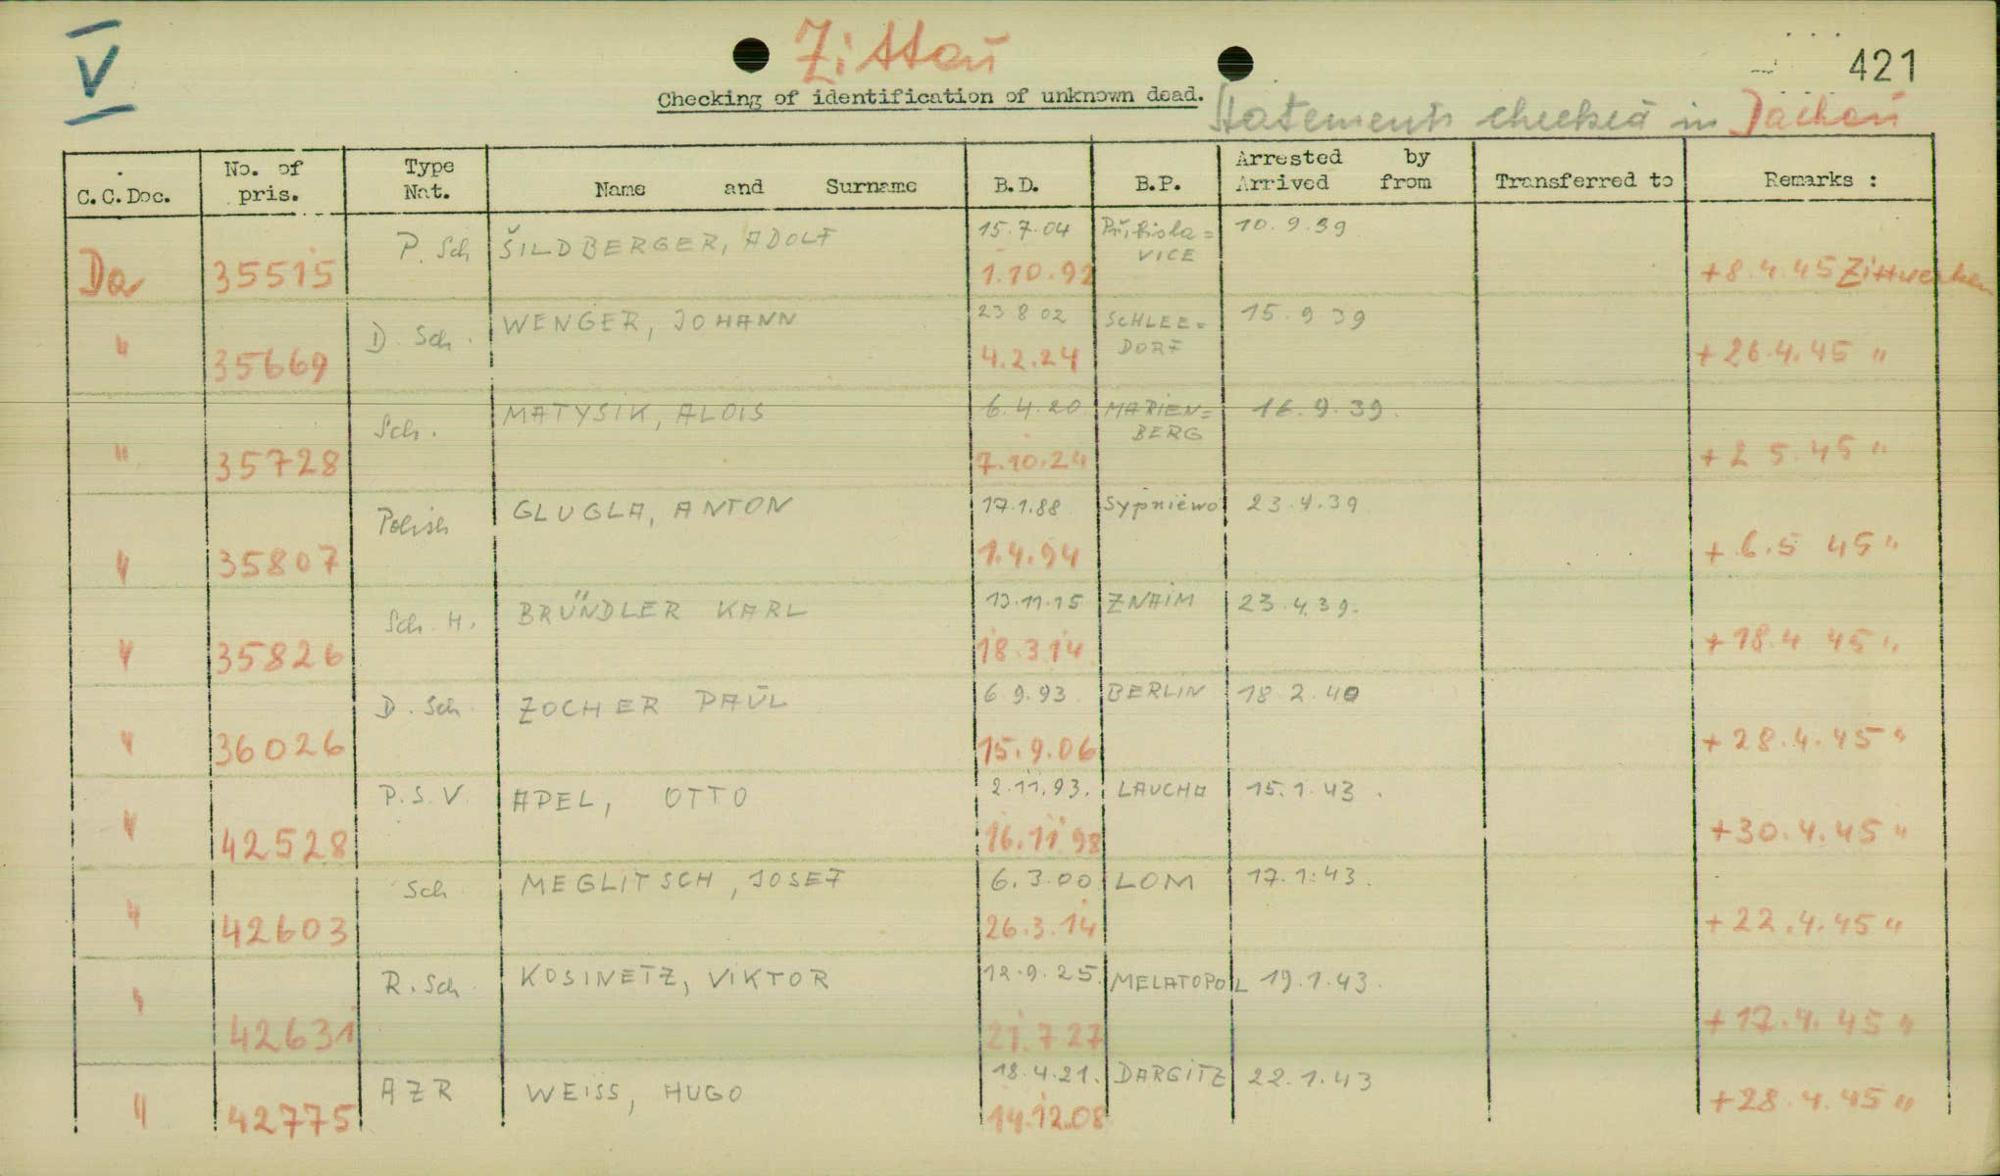 V
Zittau
421
Checking of identification of unknown dead.
Statements checked in Dachau
C.C.Doc. No. of pris. Type Nat. Name and Surname B.D. B.P. Arrested by Arrived from Transferred to Remarks :
P. Sch ŠILDBERGER, ADOLF 15.7.04 VICE 10.9.39
Da 35515 1.10.92 +8.4.45 Zittwerken
D. Sch. WENGER, JOHANN 23 8 02 SCHLEE= DORF 15.9 39
" 35669 4.2.24 +26.4.45 "
Sch. MATYSIK, ALOIS 6.4.20 MARIEN= BERG 16.9.39.
" 35728 7.10.24 +2 5.45 "
Polish GLUGLA, ANTON 17.1.88 Sypniewo 23.4.39
" 35807 1.4.94 +6.5 45 "
Sch. H. BRÜNDLER KARL 13.11.15 ZNAIM 23.4.39.
" 35826 18.3.14 +18.4 45 "
D. Sch ZOCHER PAUL 6 9.93. BERLIN 18.2.40
" 36026 15.9.06 +28.4.45 "
P.S.V. APEL, OTTO 2.11.93. LAUCHA 15.1.43.
" 42528 16.11 98 +30.4.45 "
Sch MEGLITSCH, JOSEF 6.3.00 LOM 17.1.43.
" 42603 26.3.14 +22.4.45 "
R. Sch KOSINETZ, VIKTOR 12.9.25. MELATOPOL 19.1.43.
" 42631 21.7 27 +17.4.45 "
AZR WEISS, HUGO 18.4.21. DARGITZ 22.1.43
" 42775 14.12.08 +28.4.45 "